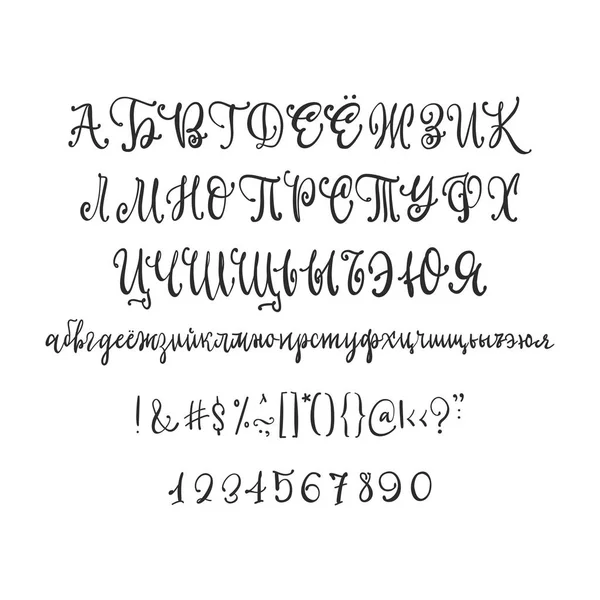 АБВГДЕЁЖЗИК
ЛМНОПРСТУФХ
ЦЧШЩЬЫЪЭЮЯ
абвгдеёжзийклмнопрстуфхцчшщьыъэюя
!&#$%^~:;[]*(){}@|‹‹?”
1234567890